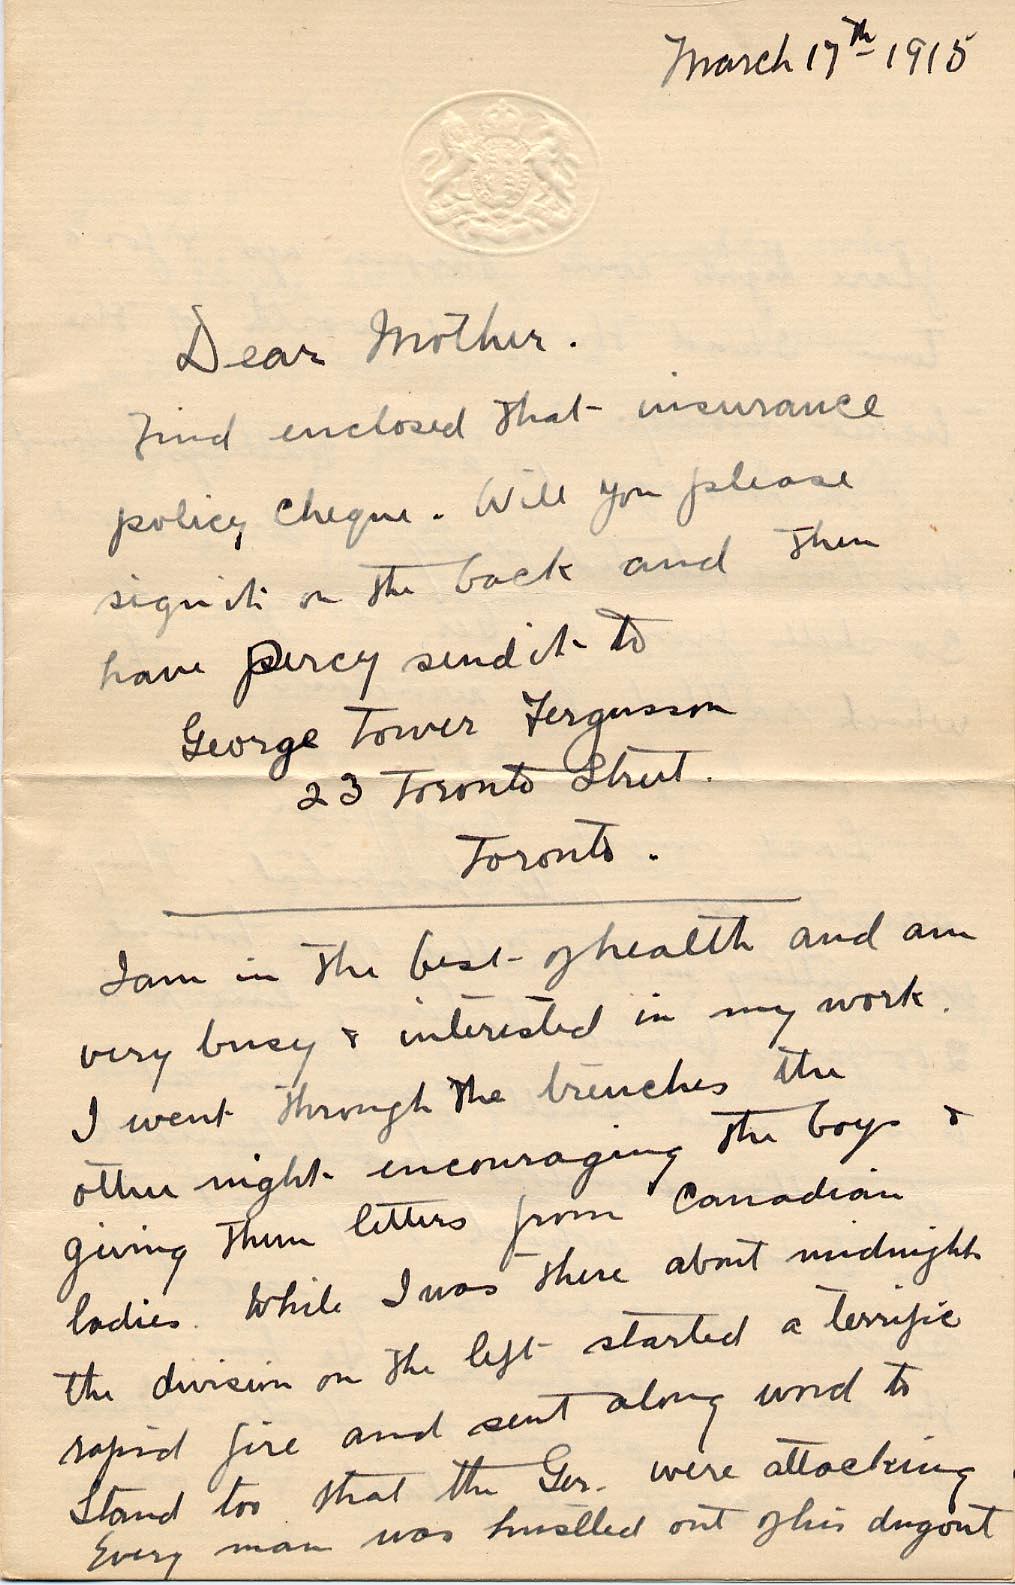 March 17th 1915
Dear Mother.
Find enclosed that insurance
policy cheque. Will you please
sign it on the back and then
have Percy send it to
George Tower Fergusson
23 Toronto Street.
Toronto.
I am in the best of health and am
very busy & interested in my work.
I went through the trenches the
other night encouraging the boys &
giving them letters from Canadian
ladies. While I was there about midnight
the division on the left started a terrific
rapid fire and sent along word to
Stand too that the Ger. were attacking.
Every man was hustled out of his dugout